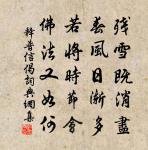 残雪既消盡
春風日漸多
若將時節會
佛法又如何
釋普信偈詞典網集